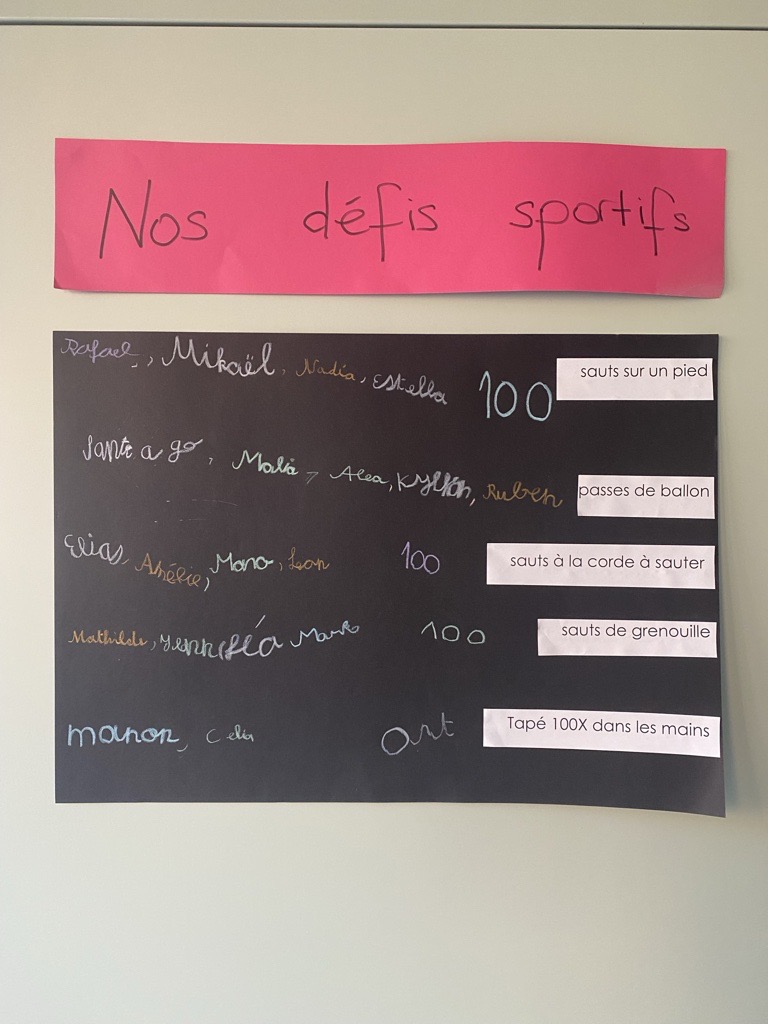 Nos défis sportifs
Rafael, Mikaël, Nadia, Estella 100 sauts sur un pied
Santiago, Malia, Alea, Kyllian, Ruben passes de ballon
Elias, Amélie, Mano, Leon 100 sauts à la corde à sauter
Mathilde, 100 sauts de grenouille
manon, Celia ont Tapé 100X dans les mains